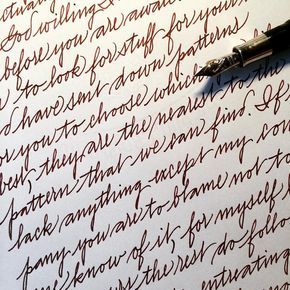 God willing
before you are aware
to look for stuff for your
have sent down patterns
you to choose which
best, they are the nearest to the
pattern that we can find. If
lack anything except my com
pany you are to blame not to
me know of it, for myself
the rest do follo
entreating